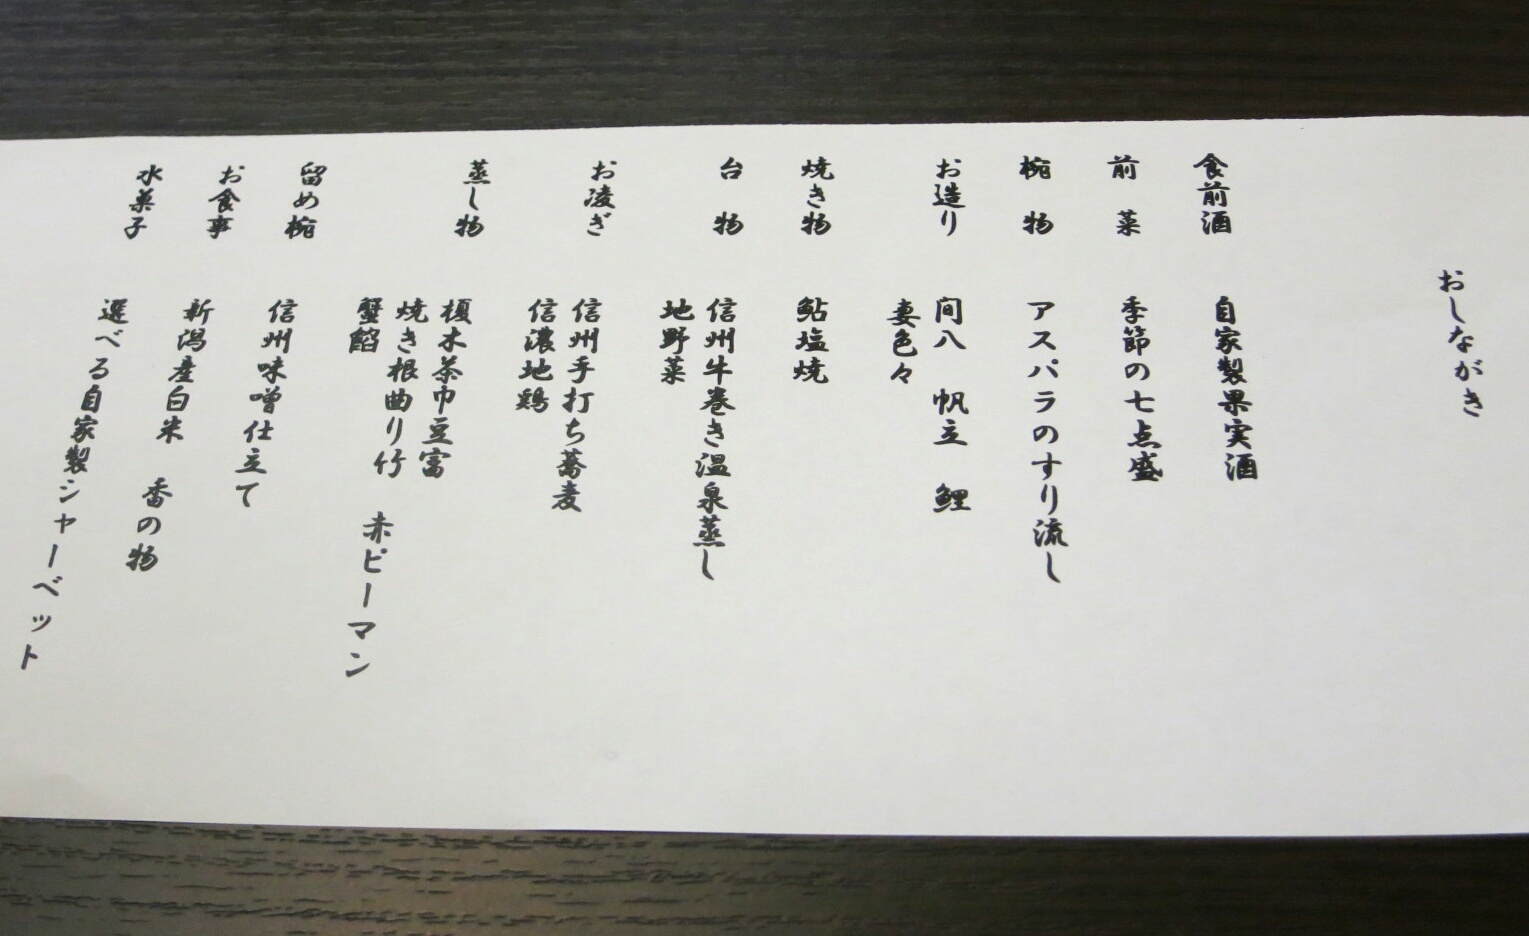 おしながき
食前酒 自家製果実酒
前菜 季節の七点盛
椀物 アスパラのすり流し
お造り 間八 帆立 鯉
妻色々
焼き物 鮎塩焼
台物 信州牛巻き温泉蒸し
地野菜
お凌ぎ 信州手打ち蕎麦
信濃地鶏
蒸し物 榎木茶巾豆富
焼き根曲り竹 赤ピーマン
蟹餡
留め椀 信州味噌仕立て
お食事 新潟産白米 香の物
水菓子 選べる自家製シャーベット